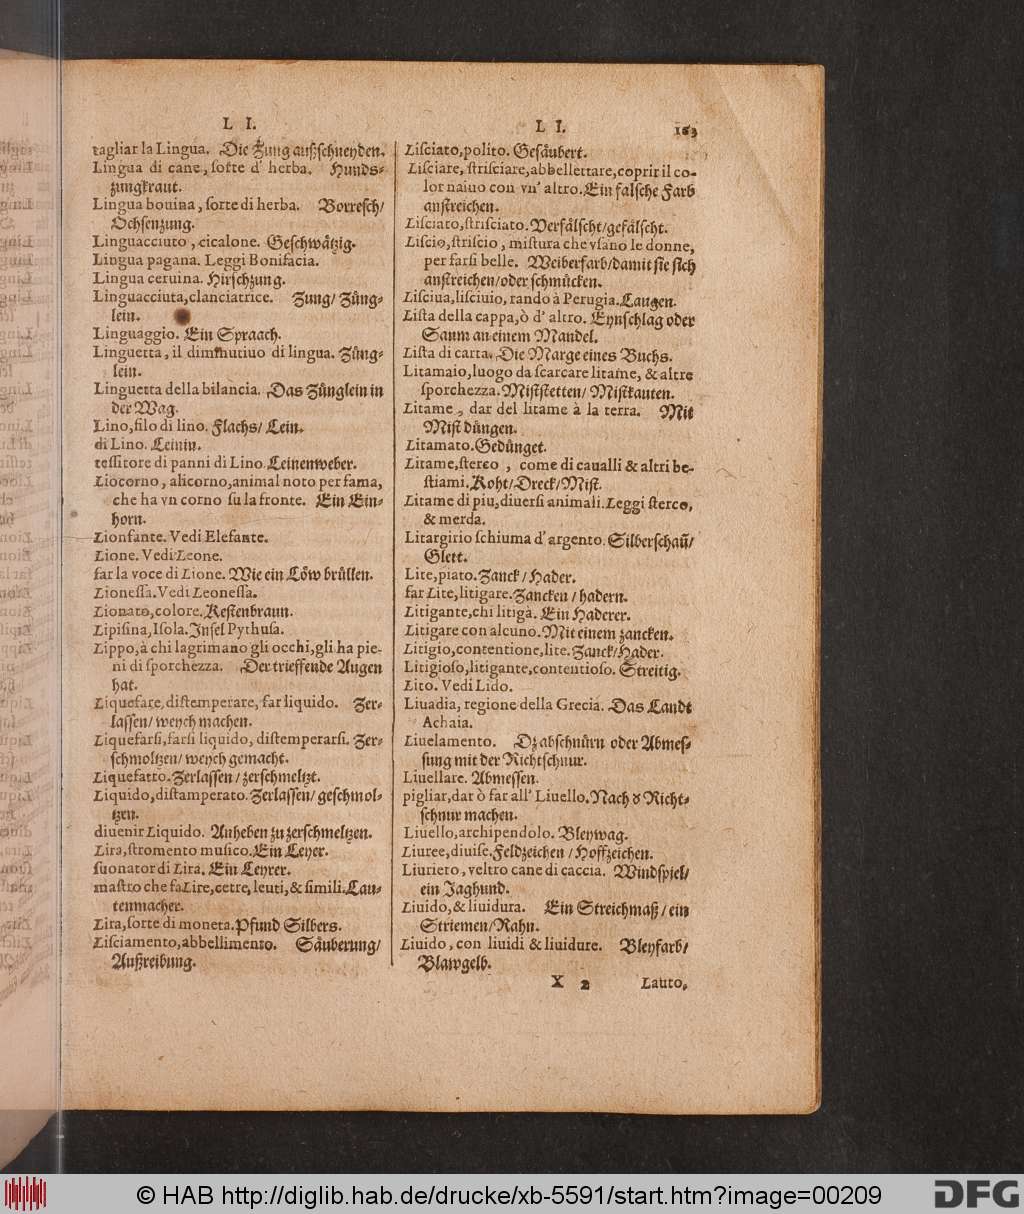 L I.
tagliar la Lingua. Die Zung außschneyden.
Lingua di cane, sorte d' herba. Hunds-
zungkraut.
Lingua bouina, sorte di herba. Borresch/
Ochsenzung.
Linguacciuto, cicalone. Geschwätzig.
Lingua pagana. Leggi Bonifacia.
Lingua ceruina. Hirschzung.
Linguacciuta, clanciatrice. Zung/ Züng-
lein.
Linguaggio. Ein Spraach.
Linguetta, il diminutiuo di lingua. Züng-
lein.
Linguetta della bilancia. Das Zünglein in
der Wag.
Lino, filo di lino. Flachs/ Lein.
di Lino. Leinin.
tessitore di panni di Lino. Leinenweber.
Liocorno, alicorno, animal noto per fama,
che ha vn corno su la fronte. Ein Ein-
horn.
Lionfante. Vedi Elefante.
Lione. Vedi Leone.
far la voce di Lione. Wie ein Löw brüllen.
Lionessa. Vedi Leonessa.
Lionato, colore. Kestenbraun.
Lipisina, Isola. Insel Pythusa.
Lippo, à chi lagrimano gli occhi, gli ha pie-
ni di sporchezza. Der trieffende Augen
hat.
Liquefare, distemperare, far liquido. Zer-
lassen/ weych machen.
Liquefarsi, farsi liquido, distemperarsi. Zer-
schmoltzen/ weych gemacht.
Liquefatto. Zerlassen/ zerschmeltzt.
Liquido, distamperato. Zerlassen/ geschmol-
tzen.
diuenir Liquido. Anheben zu zerschmeltzen.
Lira, stromento musico. Ein Leyer.
suonator di Lira. Ein Leyrer.
mastro che fa Lire, cetre, leuti, & simili. Lau-
tenmacher.
Lira, sorte di moneta. Pfund Silbers.
Lisciamento, abbellimento. Säuberung/
Außreibung.
L I. 163
Lisciato, polito. Gesäubert.
Lisciare, strisciare, abbellettare, coprir il co-
lor naiuo con vn' altro. Ein falsche Farb
anstreichen.
Lisciato, strisciato. Verfälscht/ gefälscht.
Liscio, striscio, mistura che vsano le donne,
per farsi belle. Weiberfarb/ damit sie sich
anstreichen/ oder schmücken.
Lisciua, lisciuio, rando à Perugia. Laugen.
Lista della cappa, ò d' altro. Eynschlag oder
Saum an einem Mandel.
Lista di carta. Die Marge eines Buchs.
Litamaio, luogo da scarcare litame, & altre
sporchezza. Miststetten/ Mistkauten.
Litame, dar del litame à la terra. Mit
Mist düngen.
Litamato. Gedünget.
Litame, sterco, come di caualli & altri be-
stiami. Koht/ Dreck/ Mist.
Litame di piu, diuersi animali. Leggi sterco,
& merda.
Litargirio schiuma d' argento. Silberschaũ/
Glett.
Lite, piato. Zanck/ Hader.
far Lite, litigare. Zancken/ hadern.
Litigante, chi litiga. Ein Haderer.
Litigare con alcuno. Mit einem zancken.
Litigio, contentione, lite. Zanck/ Hader.
Litigioso, litigante, contentioso. Streitig.
Lito. Vedi Lido.
Liuadia, regione della Grecia. Das Landt
Achaia.
Liuelamento. Dz abschnürn oder Abmes-
sung mit der Richtschnur.
Liuellare. Abmessen.
pigliar, dar ò far all' Liuello. Nach ď Richt-
schnur machen.
Liuello, archipendolo. Bleywag.
Liuree, diuise. Feldzeichen/ Hoffzeichen.
Liuriero, veltro cane di caccia. Windspiel/
ein Jaghund.
Liuido, & liuidura. Ein Streichmaß/ ein
Striemen/ Rahn.
Liuido, con liuidi & liuidure. Bleyfarb/
Blawgelb.
X 2 Lauto,
© HAB http://diglib.hab.de/drucke/xb-5591/start.htm?image=00209
DFG